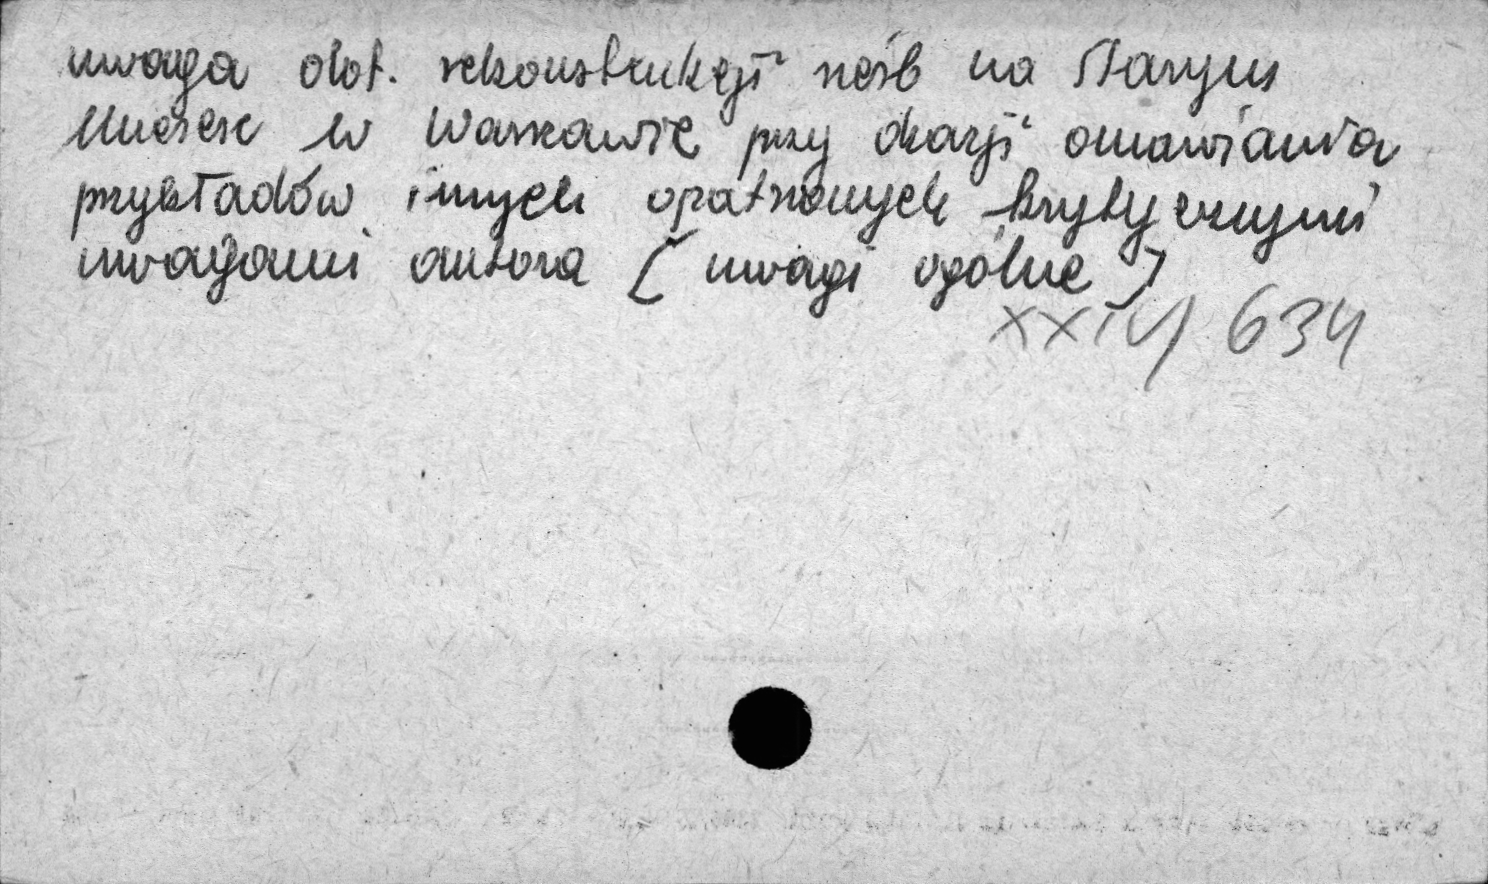 uwaga dot. rekonstrukcji rzeźb na Starym
Mieście w Warszawie przy okazji omawiania
przykładów innych opatrzonych krytycznymi
uwagami autora (uwagi ogólne)
XXIV/634